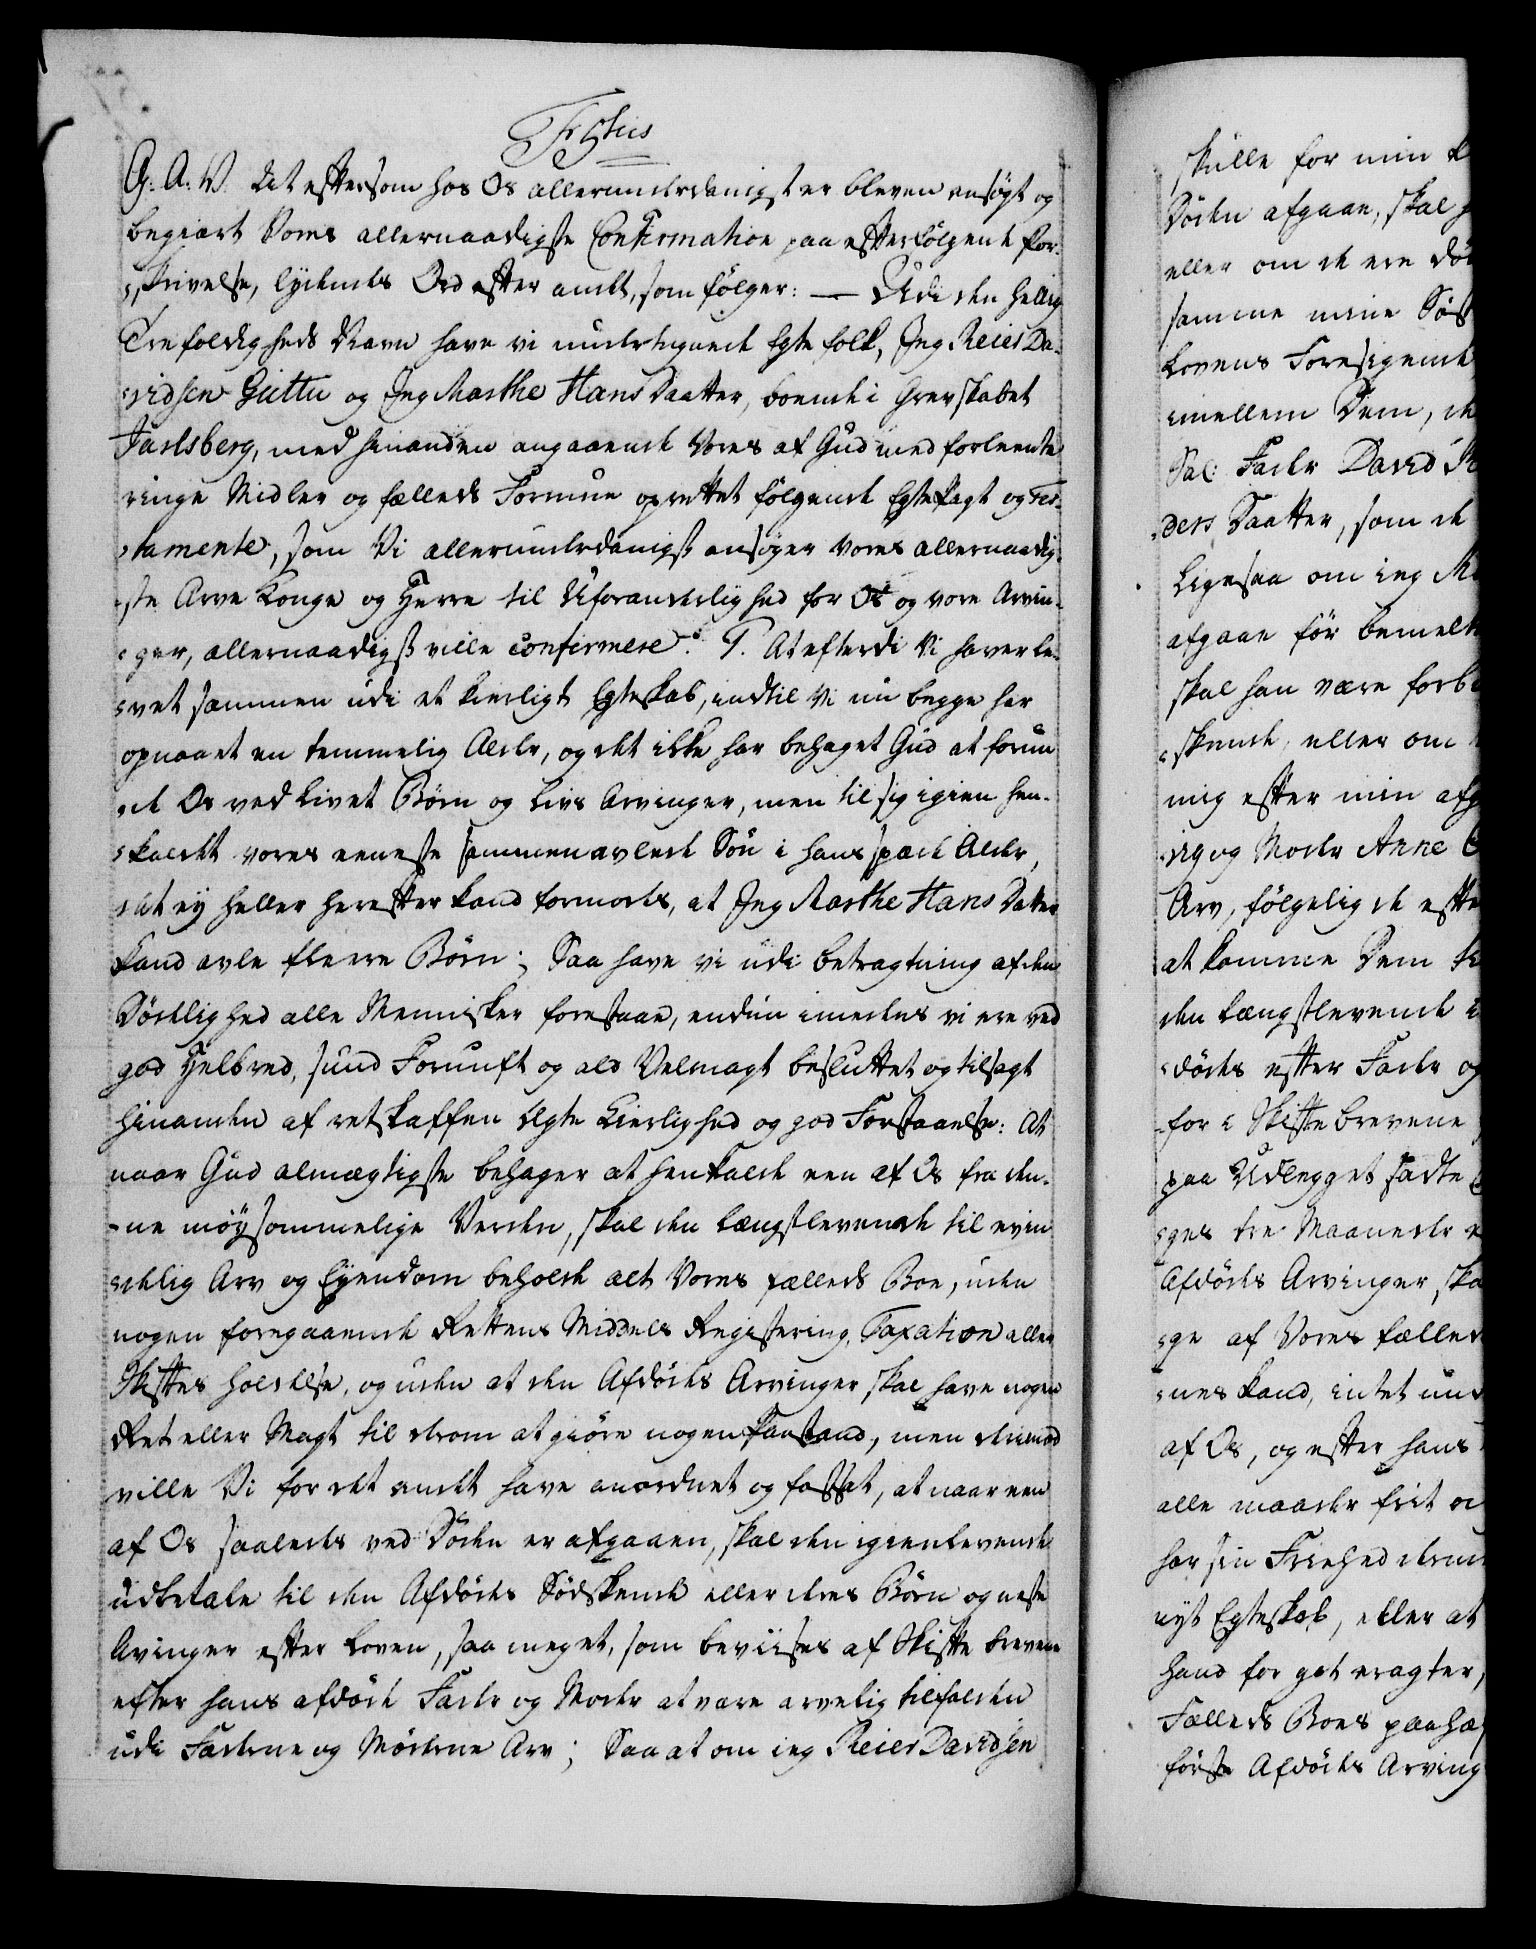 Fr 5tus
G: A: V. At eftersom hos Os allerunderdanigst er bleven ansøgt og
begiært Vores allernaadigste Confirmation paa efterfölgende for-
skrivelse, lydende Ord efter andet, som følger: — Udi den hellig
Trefoldigheds Navn have vi undertegnede Egte folk, Jeg Reier Da-
vidsen Giettu og Jeg Marthe Hans Daatter, boende i Grevskabet
Jarlsberg, med hinanden angaaende Vores af Gud med forleente
ringe Midler og fælleds Formue oprettet følgende Egtepagt og Tes-
tamente, som Vi allerunderdanigst ansøger Vores allernaadig-
ste Arve Konge og Herre til Uforanderlighed for Os og vore Arvin-
ger, allernaadigst ville confirmere. At efterdi Vi haver le-
vet sammen udi et kierligt Egteskab, indtil Vi nu begge har
opnaaet en temmelig Alder, og det ikke har behaget Gud at forun
de Os ved Livet Børn og Livs Arvinger, men til sig igien hen-
kaldt vores eeneste sammenavlede Søn i hans spæde Alder,
at ey heller herefter kand formodes, at Jeg Marthe Hans Datter
kand avle fleere Børn; Saa have vi udi betragtning af den
Dödelighed alle Mennisker forestaae, endnu imedens vi ere ved
god Helbred, sund Fornuft og ald Velmagt besluttet og tilsagt
hinanden af retskaffen Egte Kierlighed og god Forstaaelse: At
naar Gud almægtigste behager at henkalde een af Os fra den-
ne møysommelige Verden, skal den længstlevende til evin
delig Arv og Eyendom beholde alt Vores fælleds Boe, uden
nogen foregaaende Rettens Middels Registering, Taxation eller
Skiftes holdelse, og uden at den Afdödes Arvinger skal have nogen
Ret eller Magt til derom at giöre nogen Paastand, men derimod
ville Vi for det andet have anordnet og fastsat, at naar een
af Os saaledes ved Döden er afgaaen, skal den igienlevende
udbetale til den Afdödes Södskende eller deres Börn og neste
Arvinger efter Loven, saa meget, som beviises af Skifte brevene
efter hans afdöde Fader og Moder at være arvelig tilfalden
udi Fæderne og Möderne Arv; Saa at om jeg Reier Davidsen
skulle for min
Döden afgaae, skal
eller om de ere död
samme mine Söds
Lovens Foresigende
imellem Dem, de
Sal: Fader David
ders Daatter, som de
Ligesaa om jeg Ma
afgaae för bemelte
skal han være forb
skende, eller om
mig efter min afg
rig og Moder Anne
Arv, fölgelig de efter
at komme Dem til
den længstlevende
dödes efter Fader og
for i Skifte brevene
paa Udlegget sadte
ges tre Maaneder
Afdödes Arvinger, ska
ge af Vores fælleds
nes kand, intet und
af Os, og efter hans
alle maader frit og
har sin Friehed
nyt Egteskab, eller at
hand for got eragter,
Fælleds Boes paahæ
förste Afdödes Arving